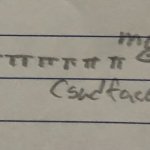 my
π π π π π π π
(sadface